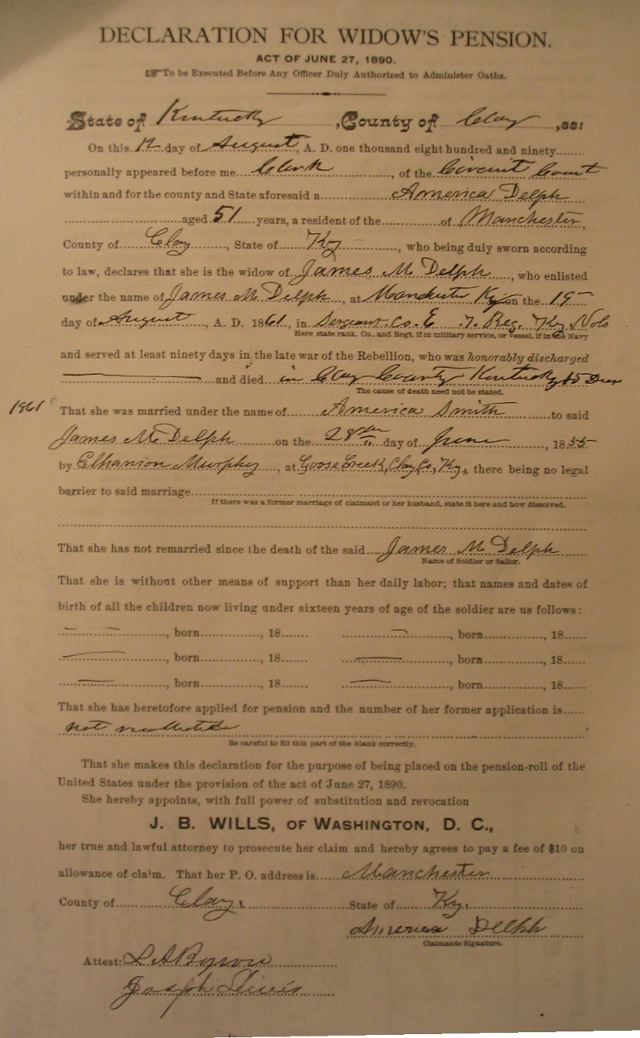 DECLARATION FOR WIDOW'S PENSION.
ACT OF JUNE 27, 1890.
To be Executed Before Any Officer Duly Authorized to Administer Oaths.
State of Kentucky, County of Clay, ss:
On this 12 day of August, A. D. one thousand eight hundred and ninety
personally appeared before me Clerk, of the Circuit Court
within and for the county and State aforesaid a America Delph
aged 51 years, a resident of the of Manchester,
County of Clay, State of Ky, who being duly sworn according
to law, declares that she is the widow of James M. Delph, who enlisted
under the name of James M. Delph, at Manchester Ky on the 19
day of August, A. D. 1861, in Sergeant Co. E 7. Reg. Ky. Vols
Here state rank, Co. and Regt. if in military service, or Vessel, if in the Navy
and served at least ninety days in the late war of the Rebellion, who was honorably discharged
and died in Clay County Kentucky 15 Dec
The cause of death need not be stated.
1861
That she was married under the name of America Smith to said
James M. Delph on the 28th day of June, 1855
by Murphy, at Goose Creek, Clay Co, Ky, there being no legal
barrier to said marriage
If there was a former marriage of claimant or her husband, state it here and how dissolved.
That she has not remarried since the death of the said James M. Delph
Name of Soldier or Sailor.
That she is without other means of support than her daily labor; that names and dates of
birth of all the children now living under sixteen years of age of the soldier are as follows:
, born , 18 , born , 18
, born , 18 , born , 18
, born , 18 , born , 18
That she has heretofore applied for pension and the number of her former application is
not
Be careful to fill this part of the blank correctly.
That she makes this declaration for the purpose of being placed on the pension-roll of the
United States under the provision of the act of June 27, 1890.
She hereby appoints, with full power of substitution and revocation
J. B. WILLS, OF WASHINGTON, D. C.,
her true and lawful attorney to prosecute her claim and hereby agrees to pay a fee of $10 on
allowance of claim. That her P. O. address is Manchester
County of Clay, State of Ky.
America Delph
Claimants Signature.
Attest:
Joseph